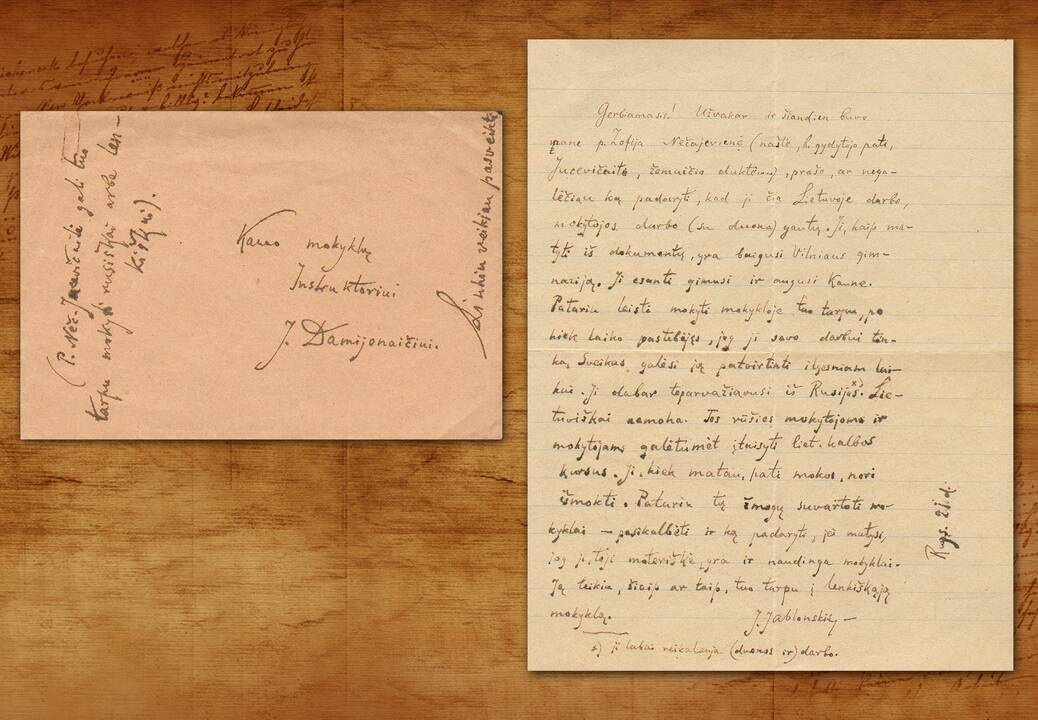 (P. Neč. Jucevičaitė gali tuo
tarpu mokyti rusiškai arba len-
kiškai).
Kauno mokyklų
Instruktoriui
J. Damijonaičiui.
Linkiu veikiau pasveikti
Gerbiamasis! Užvakar ir šiandien buvo
mane p. Zofija Nečajevienė (našlė, b. gydytojo pati,
Jucevičaitė, žemaičio duktė), prašo, ar nega-
lėčiau ką padaryti, kad ji čia Lietuvoje darbo,
mokytojos darbo (su duona) gautų. Ji, kaip ma-
tyti iš dokumentų, yra baigusi Vilniaus gim-
naziją. Ji esanti gimusi ir augusi Kaune.
Patariu leisti mokyti mokykloje tuo tarpu, po
kiek laiko pastebėjęs, jog ji savo darbui tin-
ka, Sveikas, galėsi ją patvirtinti ilgesniam lai-
kui. Ji dabar teparvažiavusi iš Rusijos x) Lie-
tuviškai nemoka. Tos rūšies mokytojoms ir
mokytojams galėtumėt įtaisyti liet. kalbos
kursus. Ji, kiek matau, pati mokos, nori
išmokti. Patariu tą žmogų suvartoti mo-
kyklai — pasikalbėti ir ką padaryti, jei matysi,
jog ji, toji moteriškė, yra ir naudinga mokyklai.
Ją teikiu, šiaip ar taip, tuo tarpu į lenkiškąją
mokyklą. J. Jablonskis
x) ji labai reikalauja (duonos ir) darbo.
Rugs. 21 d.